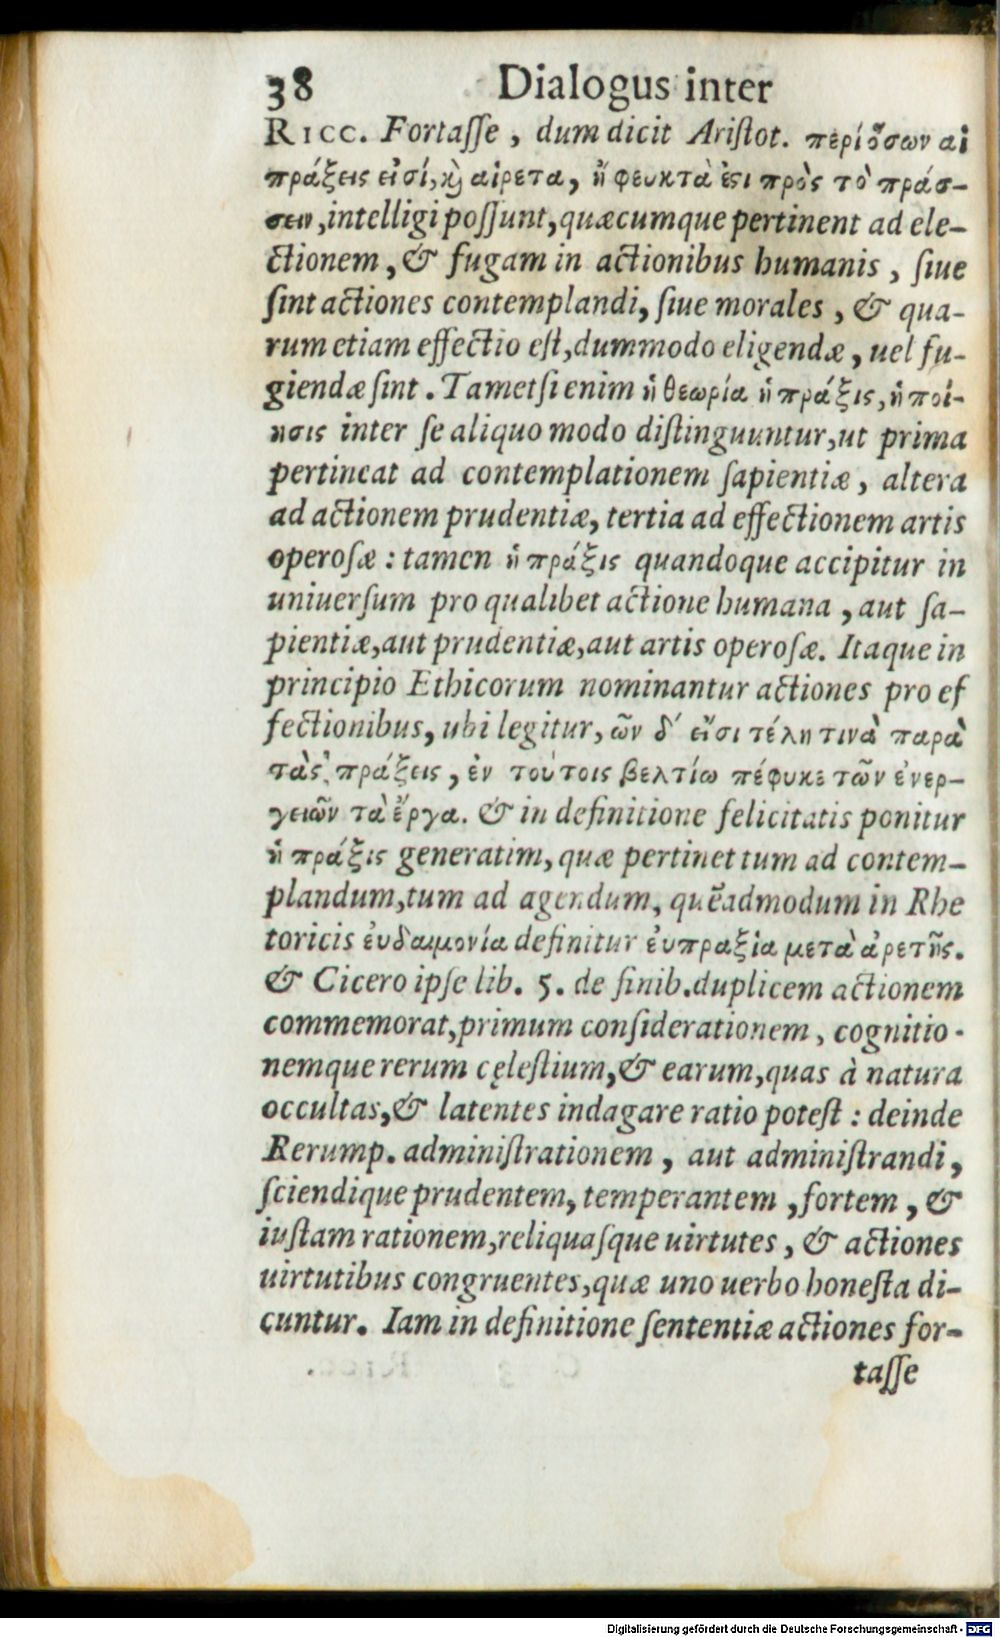 38 Dialogus inter
RICC. Fortasse, dum dicit Aristot. περὶ ὅσων αἱ
πράξεις εἰσί, καὶ αἱρετα, ἢ φευκτὰ ἐστι πρὸς τὸ πράσ-
σειν, intelligi possunt, quæcumque pertinent ad ele-
ctionem, & fugam in actionibus humanis, siue
sint actiones contemplandi, siue morales, & qua-
rum etiam effectio est, dummodo eligendæ, uel fu-
giendæ sint. Tametsi enim ἡ θεωρία ἡ πράξις, ἡ ποί-
ησις inter se aliquo modo distinguuntur, ut prima
pertineat ad contemplationem sapientiæ, altera
ad actionem prudentiæ, tertia ad effectionem artis
operosæ: tamen ἡ πράξις quandoque accipitur in
uniuersum pro qualibet actione humana, aut sa-
pientiæ, aut prudentiæ, aut artis operosæ. Itaque in
principio Ethicorum nominantur actiones pro ef
fectionibus, ubi legitur, ὧν δ' εἴσι τέλη τινὰ παρὰ
τὰς πράξεις, ἐν τούτοις βελτίω πέφυκε τῶν ἐνερ-
γειῶν τὰ ἔργα. & in definitione felicitatis ponitur
ἡ πράξις generatim, quæ pertinet tum ad contem-
plandum, tum ad agendum, quẽadmodum in Rhe
toricis ἐυδαιμονία definitur ἐυπραξία μετὰ ἀρετῆς.
& Cicero ipse lib. 5. de finib. duplicem actionem
commemorat, primum considerationem, cognitio-
nemque rerum cęlestium, & earum, quas à natura
occultas, & latentes indagare ratio potest: deinde
Rerump. administrationem, aut administrandi,
sciendique prudentem, temperantem, fortem, &
iustam rationem, reliquasque uirtutes, & actiones
uirtutibus congruentes, quæ uno uerbo honesta di-
cuntur. Iam in definitione sententiæ actiones for-
tasse
Digitalisierung gefördert durch die Deutsche Forschungsgemeinschaft - DFG